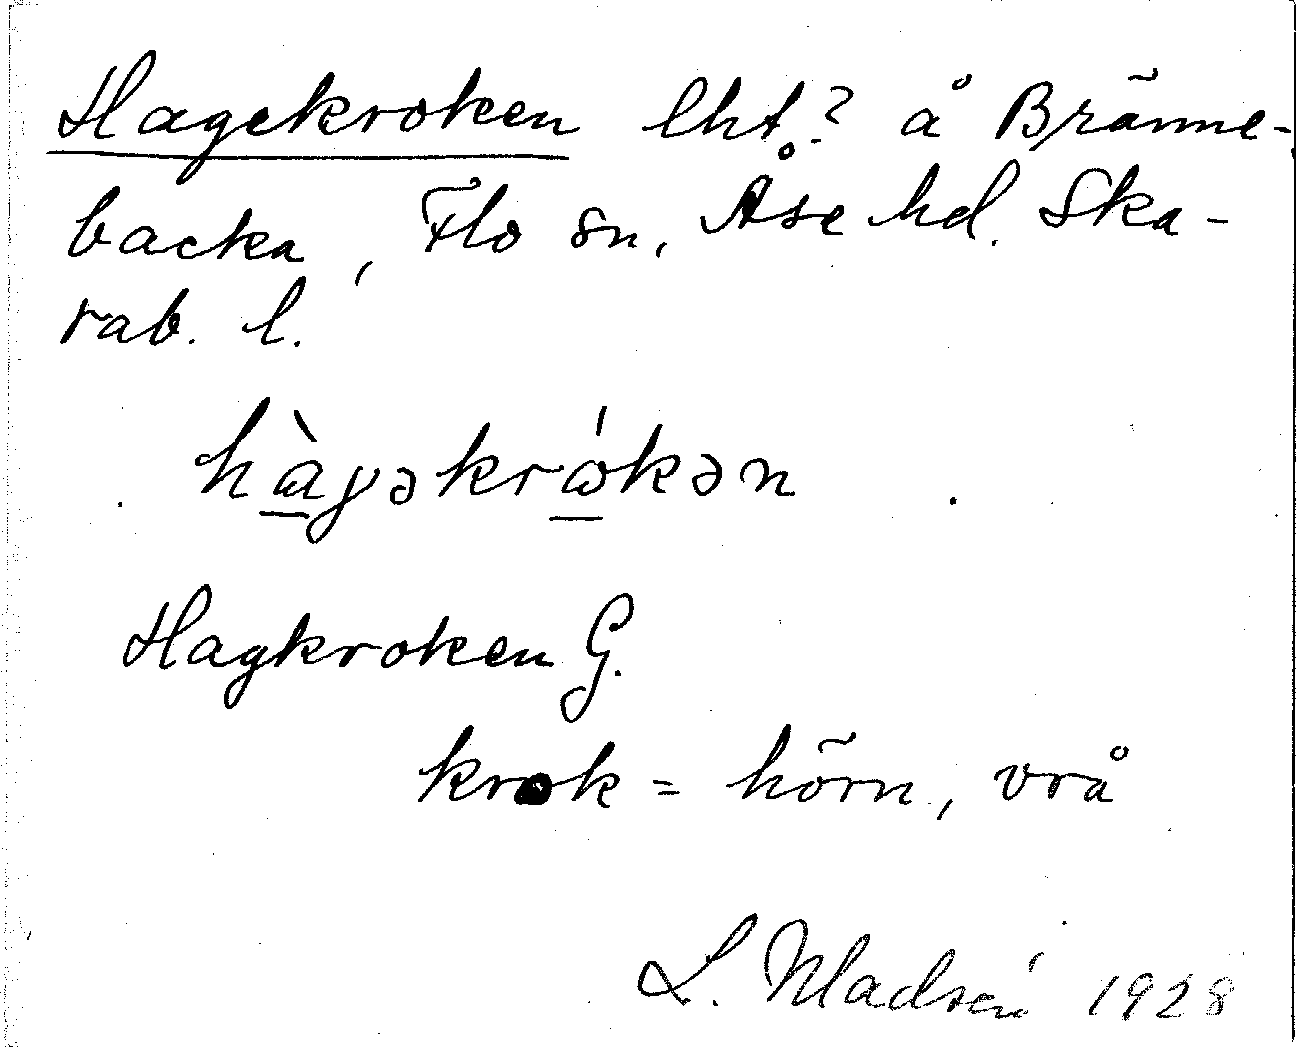 Hagekroken lht.? å Bränne-
backa, Flo sn, Åse hd. Ska-
rab. l.
hàɣəkrώkən
Hagkroken G.
krok = hörn, vrå
L. Madsén 1928